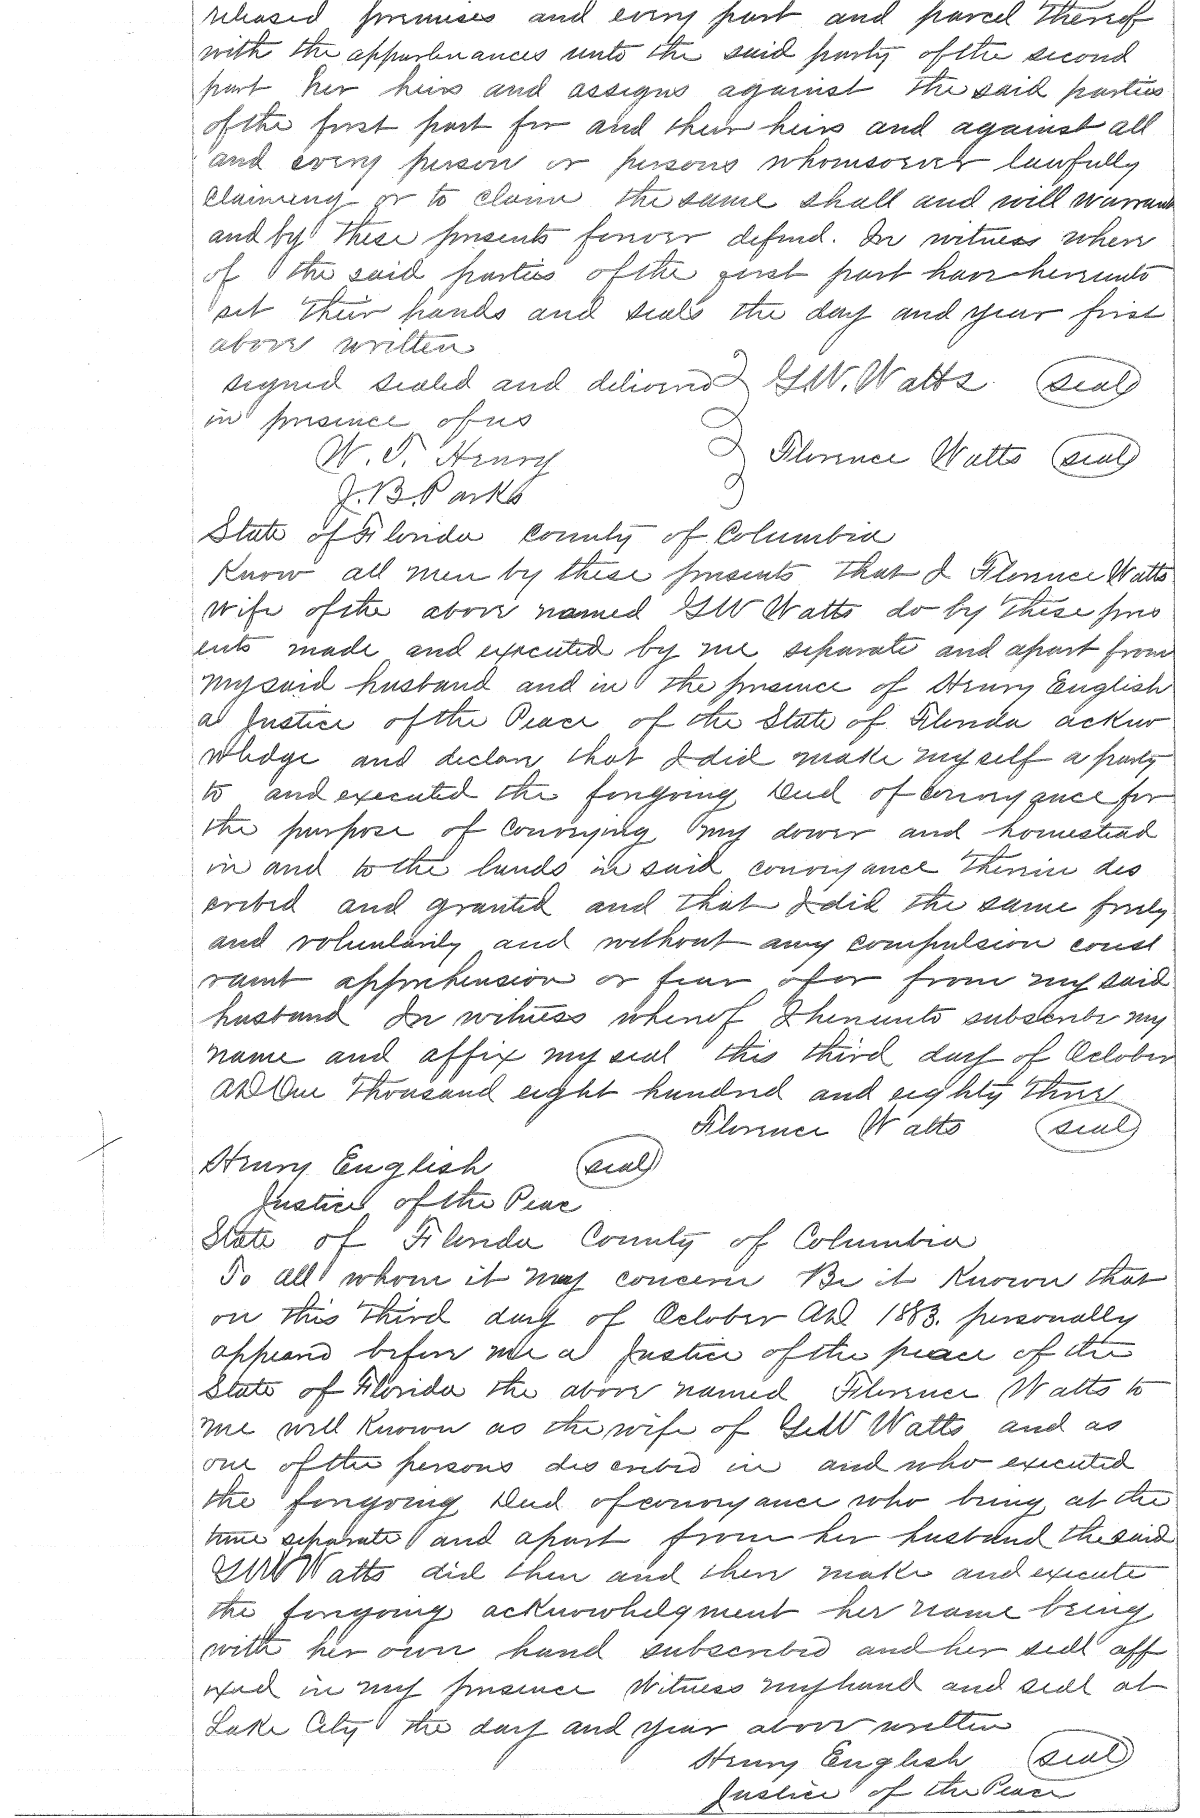 released premises and every part and parcel thereof
with the appurtenances unto the said party of the second
part her heirs and assigns against the said parties
of the first part for and their heirs and against all
and every person or persons whomsoever lawfully
claiming or to claim the same shall and will warrant
and by these presents forever defend. In witness where
of the said parties of the first part have hereunto
set their hands and seals the day and year first
above written
signed sealed and delivered G.W. Watts seal
in presence of us
W. T. Henry Florence Watts seal
J. B. Parks
State of Florida County of Columbia
Know all men by these presents that I Florence Watts
wife of the above named GW Watts do by these pres
ents made and executed by me separate and apart from
my said husband and in the presence of Henry English
a Justice of the Peace of the State of Florida ackno
wledge and declare that I did make myself a party
to and executed the foregoing Deed of conveyance for
the purpose of conveying my dower and homestead
in and to the lands in said conveyance therein des
cribed and granted and that I did the same freely
and voluntarily and without any compulsion const
raint apprehension or fear of or from my said
husband In witness whereof I hereunto subscribe my
name and affix my seal this third day of October
AD One thousand eight hundred and eighty three
Florence Watts seal
Henry English seal
Justice of the Peace
State of Florida County of Columbia
To all whom it may concern Be it Known that
on this third day of October AD 1883. personally
appeared before me a Justice of the peace of the
State of Florida the above named Florence Watts to
me well Known as the wife of G.W Watts and as
one of the persons described in and who executed
the foregoing Deed of conveyance who being at the
time separate and apart from her husband the said
GW Watts did then and there make and execute
the foregoing acknowhelgment her name being
with her own hand subscribed and her seal aff
ixed in my presence Witness my hand and seal at
Lake City the day and year above written
Henry English seal
Justice of the Peace